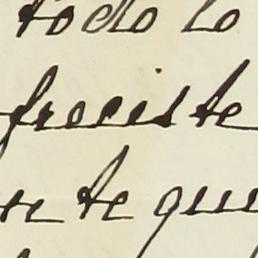 todo lo
freciste
te que